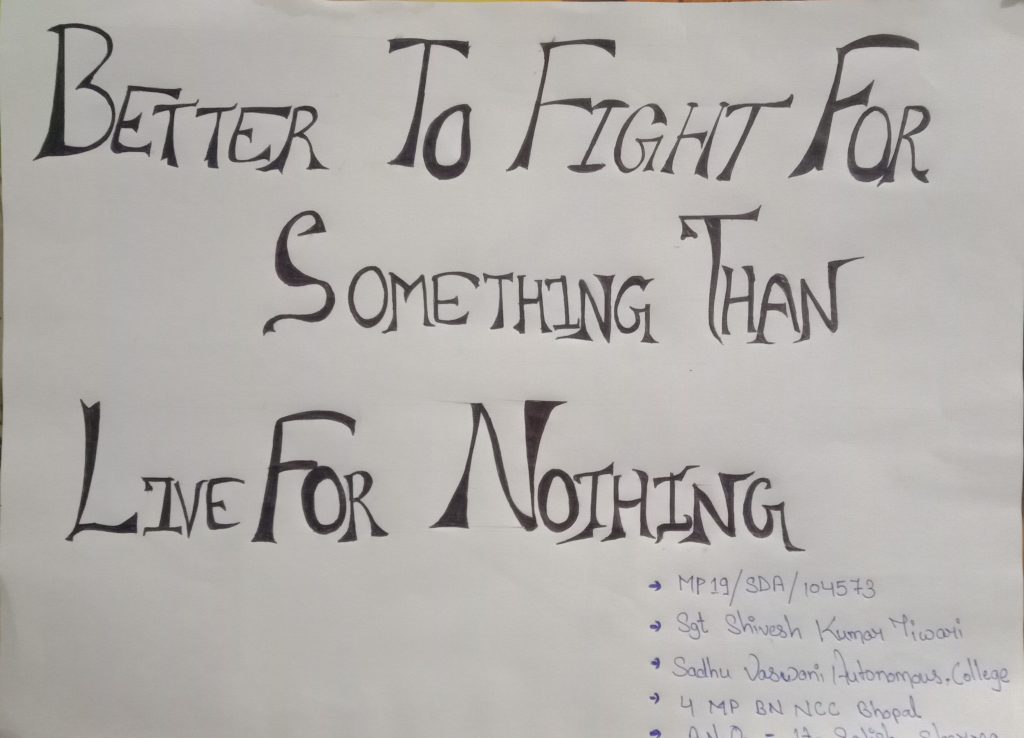 BETTER TO FIGHT FOR
SOMETHING THAN
LIVE FOR NOTHING
→ MP19/SDA/104573
→ Sgt Shivesh Kumar Tiwari
→ Sadhu Vaswani Autonomous College
→ 4 MP BN NCC Bhopal